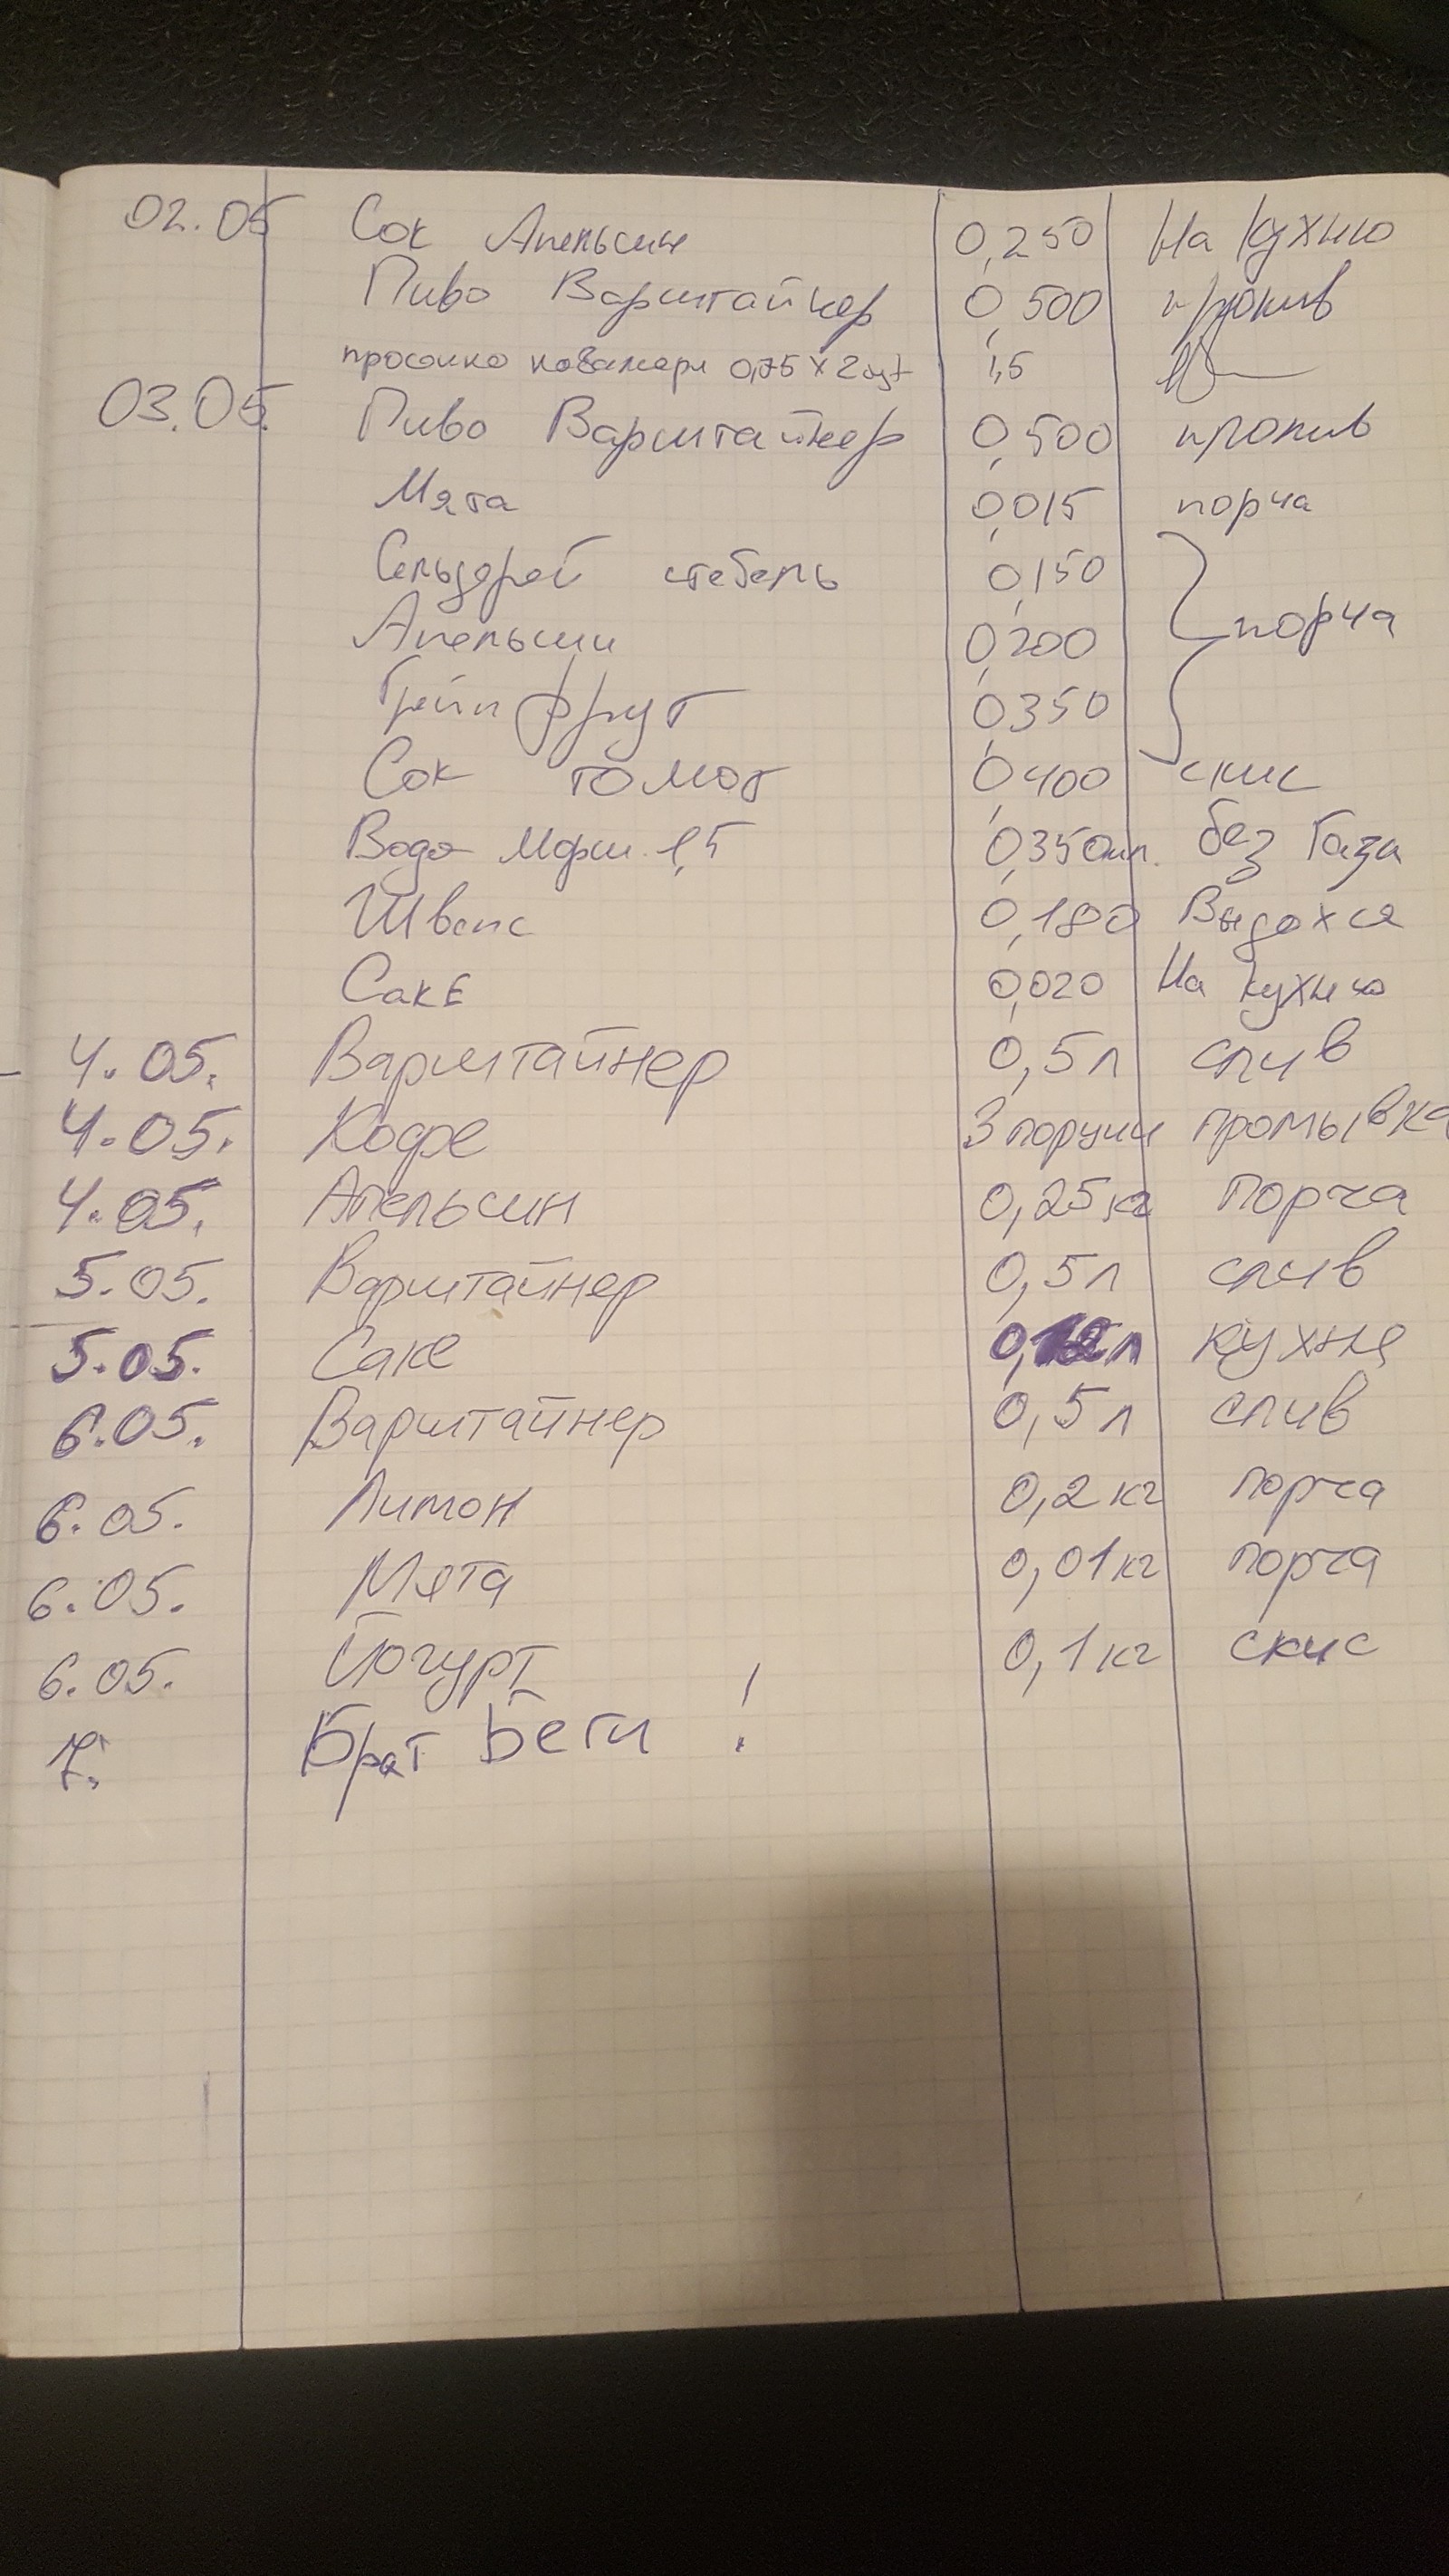 02.05 Сок Апельсин 0,250 На кухню
Пиво Варштайнер 0,500 пролив
просекко 0,75 х 2 1,5
03.05. Пиво Варштайнер 0,500 пролив
Мята 0,015 порча
Сельдерей стебель 0,150
Апельсин 0,200 порча
Грейпфрут 0,350
Сок томат 0,400 скис
Вода 1,5 0,350мл. без газа
Швепс 0,180 Выдохся
Саке 0,020 На кухню
4.05. Варштайнер 0,5л слив
4.05. Кофе 3 порции промывка
4.05. Апельсин 0,25кг порча
5.05. Варштайнер 0,5л слив
5.05. Саке кухня
6.05. Варштайнер 0,5л слив
6.05. Лимон 0,2кг порча
6.05. Мята 0,01кг порча
6.05. Йогурт 0,1кг скис
7. Брат Беги !